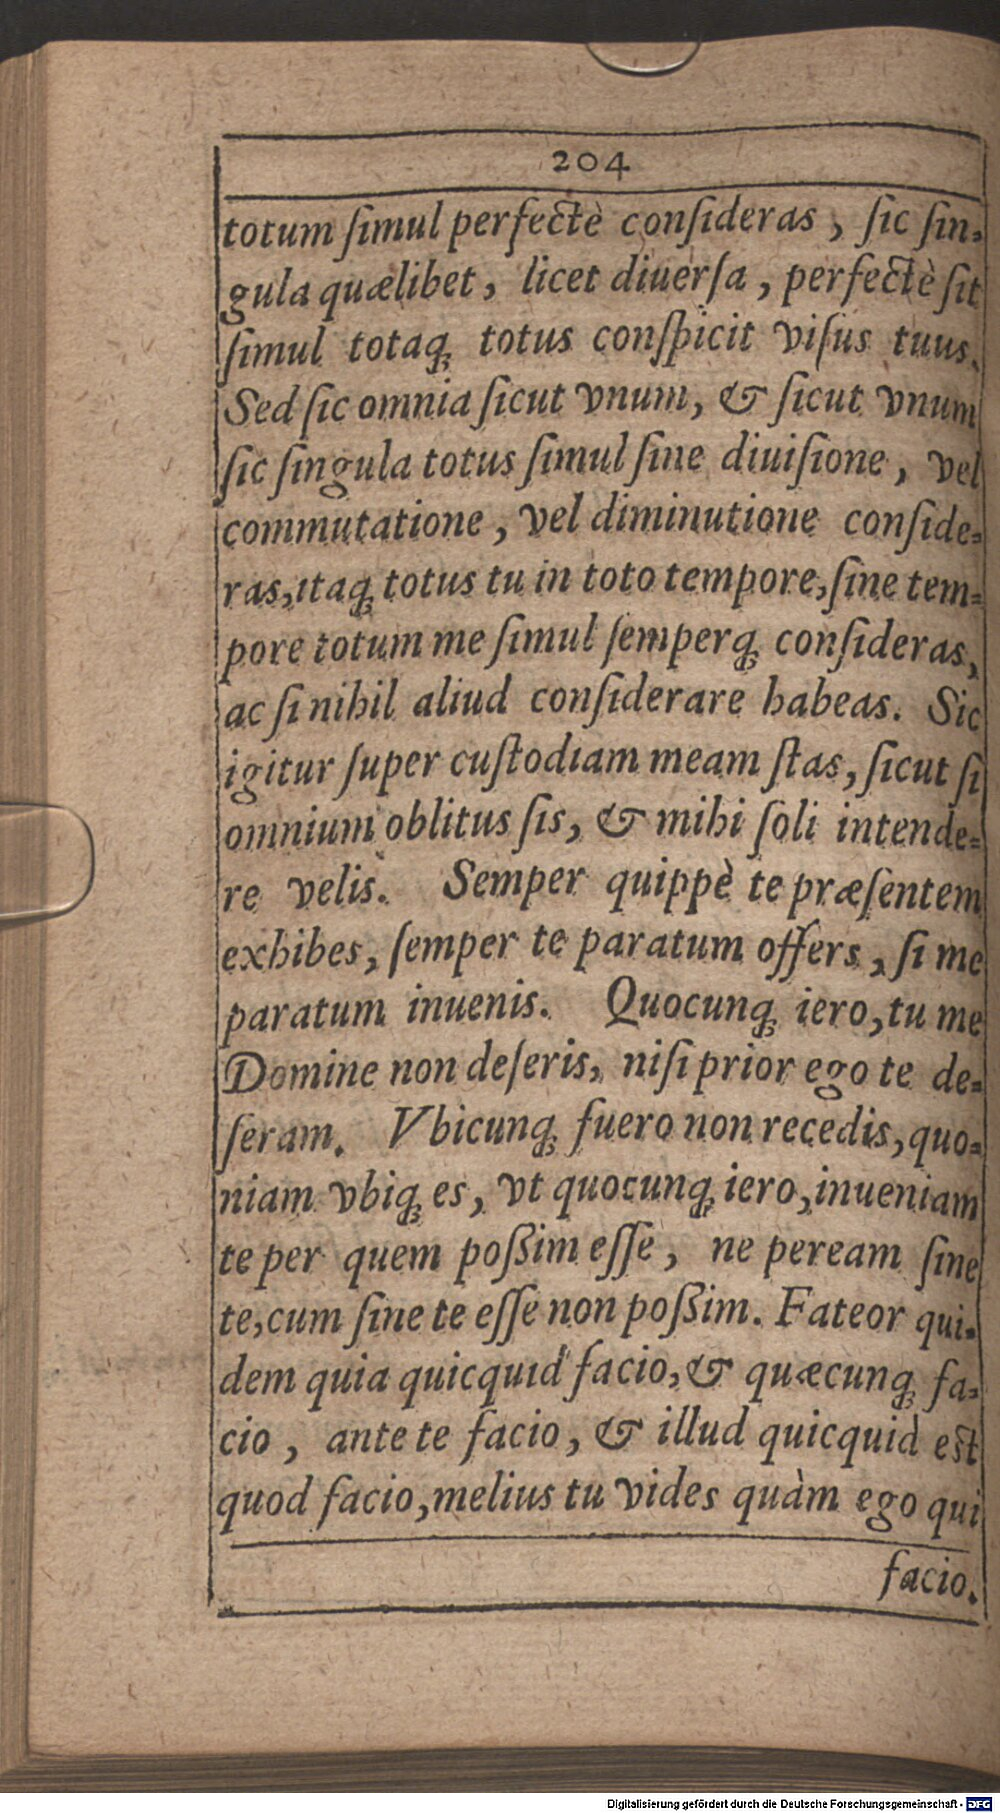 204
totum ſimul perfectè conſideras, ſic ſin-
gula quælibet, licet diuerſa, perfectè ſit
ſimul totaq́ꝫ totus conſpicit viſus tuus.
Sed ſic omnia ſicut vnum, & ſicut vnum
ſic ſingula totus ſimul ſine diuiſione, vel
commutatione, vel diminutione conſide-
ras, itaq́ꝫ totus tu in toto tempore, ſine tem-
pore totum me ſimul ſemperq́ꝫ conſideras,
ac ſi nihil aliud conſiderare habeas. Sic
igitur ſuper cuſtodiam meam ſtas, ſicut ſi
omnium oblitus ſis, & mihi ſoli intende-
re velis. Semper quippè te præſentem
exhibes, ſemper te paratum offers, ſi me
paratum inuenis. Quocunq́ꝫ iero, tu me
Domine non deſeris, niſi prior ego te de-
ſeram. Vbicunq́ꝫ fuero non recedis, quo-
niam vbiq́ꝫ es, vt quocunq́ꝫ iero, inueniam
te per quem poßim eſſe, ne peream ſine
te, cum ſine te eſſe non poßim. Fateor qui-
dem quia quicquid facio, & quæcunq́ꝫ fa-
cio, ante te facio, & illud quicquid eſt
quod facio, melius tu vides quàm ego qui
facio.
Digitalisierung gefördert durch die Deutsche Forschungsgemeinschaft - DFG